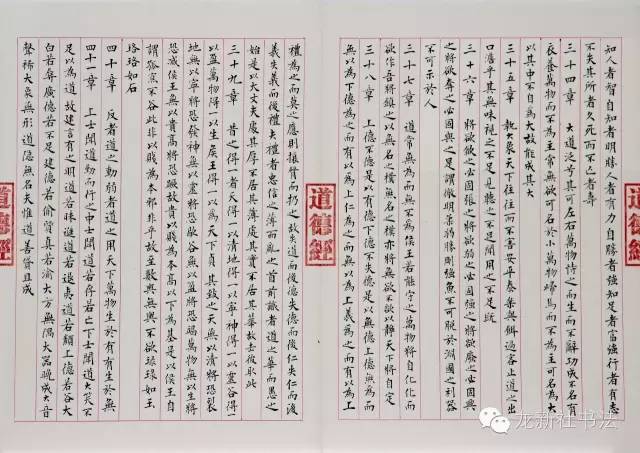 知人者智自知者明勝人者有力自勝者強知足者富強行者有志
不失其所者久死而不亡者壽
三十四章 大道泛兮其可左右萬物恃之而生而不辭功成不名有
衣養萬物而不為主常無欲可名於小萬物歸焉而不為主可名為大
以其中不自為大故能成其大
三十五章 執大象天下往往而不害安平泰樂與餌過客止道之出
口淡乎其無味視之不足見聽之不足聞用之不足既
三十六章 將欲歙之必固張之將欲弱之必固強之將欲廢之必固興
之將欲奪之必固與之是謂微明柔弱勝剛強魚不可脫於淵國之利器
不可示於人
三十七章 道常無為而無不為侯王若能守之萬物將自化化而
欲作吾將鎮之以無名之樸無名之樸亦將無欲不欲以靜天下將自定
三十八章 上德不德是以有德下德不失德是以無德上德無為而
無以為下德為之而有以為上仁為之而無以為上義為之而有以為上
道德經
禮為之而莫之應則攘臂而扔之故失道而後德失德而後仁失仁而後
義失義而後禮夫禮者忠信之薄而亂之首前識者道之華而愚之
始是以大丈夫處其厚不居其薄處其實不居其華故去彼取此
三十九章 昔之得一者天得一以清地得一以寧神得一以靈谷得一
以盈萬物得一以生侯王得一以為天下貞其致之天無以清將恐裂
地無以寧將恐發神無以靈將恐歇谷無以盈將恐竭萬物無以生將
恐滅侯王無以貴高將恐蹶故貴以賤為本高以下為基是以侯王自
謂孤寡不谷此非以賤為本邪非乎故至譽無譽不欲琭琭如玉
珞珞如石
四十章 反者道之動弱者道之用天下萬物生於有有生於無
四十一章 上士聞道勤而行之中士聞道若存若亡下士聞道大笑不
足以為道故建言有之明道若昧進道若退夷道若纇上德若谷大
白若辱廣德若不足建德若偷質真若渝大方無隅大器晚成大音
聲稀大象無形道隱無名夫惟道善貸且成
道德經
龙新社书法